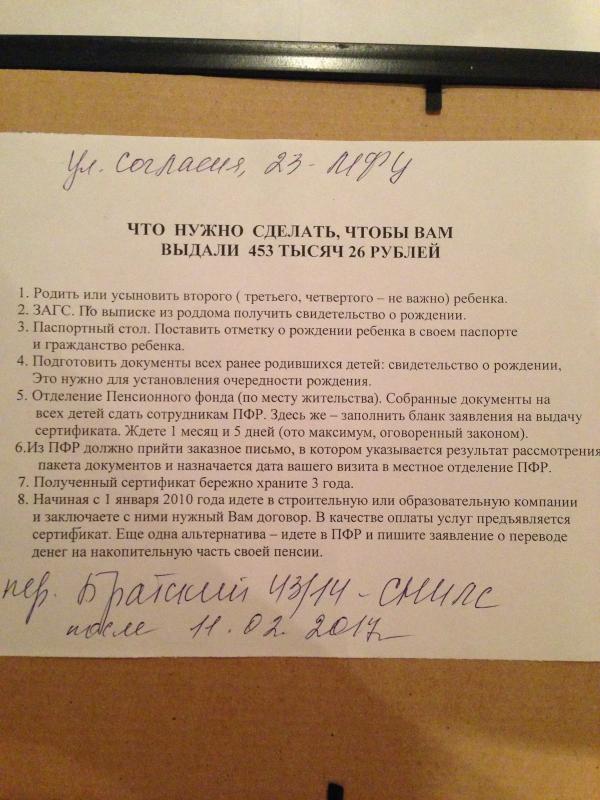 ул. Согласия, 23 - МФЦ
ЧТО НУЖНО СДЕЛАТЬ, ЧТОБЫ ВАМ
ВЫДАЛИ 453 ТЫСЯЧ 26 РУБЛЕЙ
1. Родить или усыновить второго ( третьего, четвертого – не важно) ребенка.
2. ЗАГС. По выписке из роддома получить свидетельство о рождении.
3. Паспортный стол. Поставить отметку о рождении ребенка в своем паспорте
и гражданство ребенка.
4. Подготовить документы всех ранее родившихся детей: свидетельство о рождении,
Это нужно для установления очередности рождения.
5. Отделение Пенсионного фонда (по месту жительства). Собранные документы на
всех детей сдать сотрудникам ПФР. Здесь же – заполнить бланк заявления на выдачу
сертификата. Ждете 1 месяц и 5 дней (ото максимум, оговоренный законом).
6.Из ПФР должно прийти заказное письмо, в котором указывается результат рассмотрения
пакета документов и назначается дата вашего визита в местное отделение ПФР.
7. Полученный сертификат бережно храните 3 года.
8. Начиная с 1 января 2010 года идете в строительную или образовательную компании
и заключаете с ними нужный Вам договор. В качестве оплаты услуг предъявляется
сертификат. Еще одна альтернатива – идете в ПФР и пишите заявление о переводе
денег на накопительную часть своей пенсии.
пер. Братский 43/14 - СНИЛС
после 11.02.2017